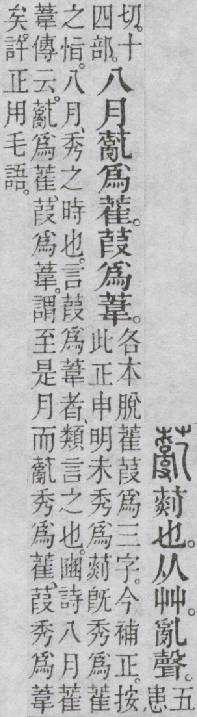 薍𦵹也。从艸。亂聲。五患
切。十四部。八月薍爲萑。葭爲葦。各本脫萑葭爲三字。今補正。按
此正申明未秀爲𦵹旣秀爲萑
之恉。八月、秀之時也。言葭爲葦者、類言之也。豳詩八月萑
葦傳云。薍爲萑。葭爲葦。謂至是月而薍秀爲萑、葭秀爲葦
矣。許正用毛語。